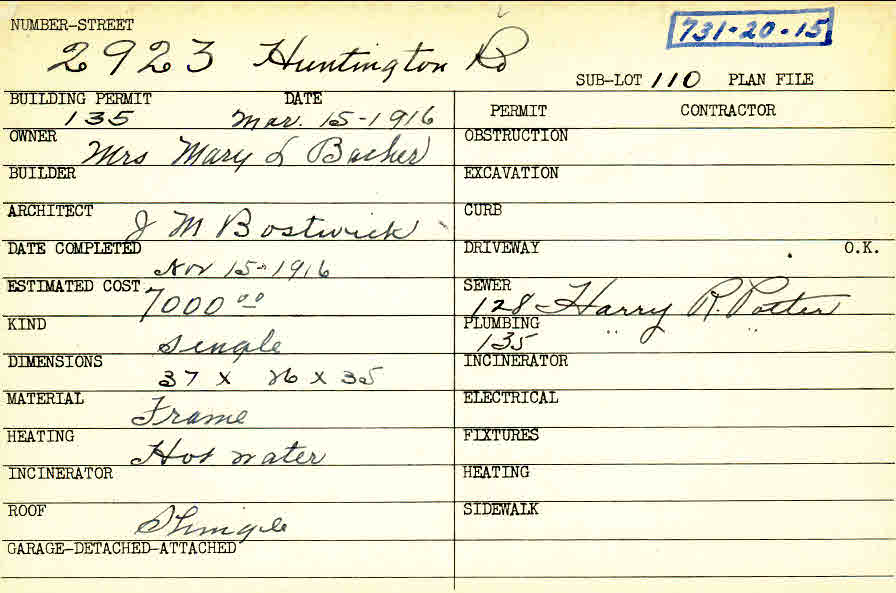 NUMBER-STREET
731-20-15
2923 Huntington Rd
SUB-LOT 110 PLAN FILE
BUILDING PERMIT DATE
135 Mar. 15-1916
PERMIT CONTRACTOR
OWNER Mrs Mary L Bacher
OBSTRUCTION
BUILDER
EXCAVATION
ARCHITECT J M Bostwick
CURB
DATE COMPLETED Nov 15-1916
DRIVEWAY O.K.
ESTIMATED COST 7000 00
SEWER 128 Harry R. Potter
KIND Single
PLUMBING 135 " "
DIMENSIONS 37 x 26 x 35
INCINERATOR
MATERIAL Frame
ELECTRICAL
HEATING Hot water
FIXTURES
INCINERATOR
HEATING
ROOF Shingle
SIDEWALK
GARAGE-DETACHED-ATTACHED